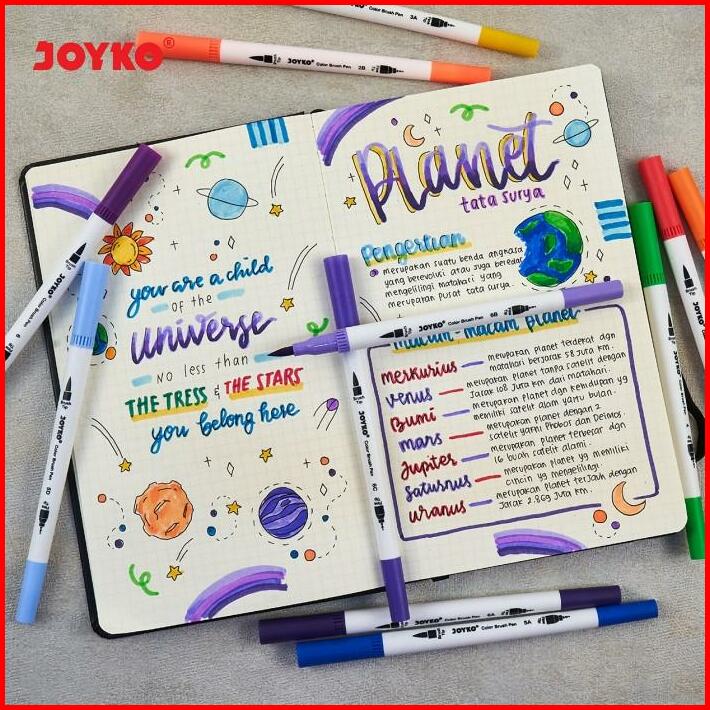 JOYKO®
JOYKO® Color Brush Pen 2B
3A
you are a child
of the
universe
no less than
THE TRESS & THE STARS
you belong here
Planet
tata surya
Pengertian
merupakan suatu benda angkasa
yang berevolusi atau juga beredar
mengelilingi matahari yang
merupakan pusat tata surya.
JOYKO® Color Brush Pen 6B
macam-macam planet
merkurius — merupakan planet terdekat dgn
matahari berjarak 58 juta km.
venus — merupakan planet tanpa satelit dengan
jarak 108 juta km dari matahari.
Bumi — merupakan planet dgn kehidupan yg
memiliki satelit alam yaitu bulan.
mars — merupakan planet dengan 2
satelit yarni Phobos dan Deimos.
Jupiter — merupakan planet terbesar dgn
16 buah satelit alami.
saturnus — merupakan planet yg memiliki
cincin yg mengelilingi.
uranus — merupakan planet terjauh dengan
jarak 2.869 juta km.
Brush Tip
JOYKO® Color Brush Pen 5D
Brush Tip
JOYKO® Color Brush Pen 6C
JOYKO® Color Brush Pen 6A
JOYKO® Color Brush Pen 5A